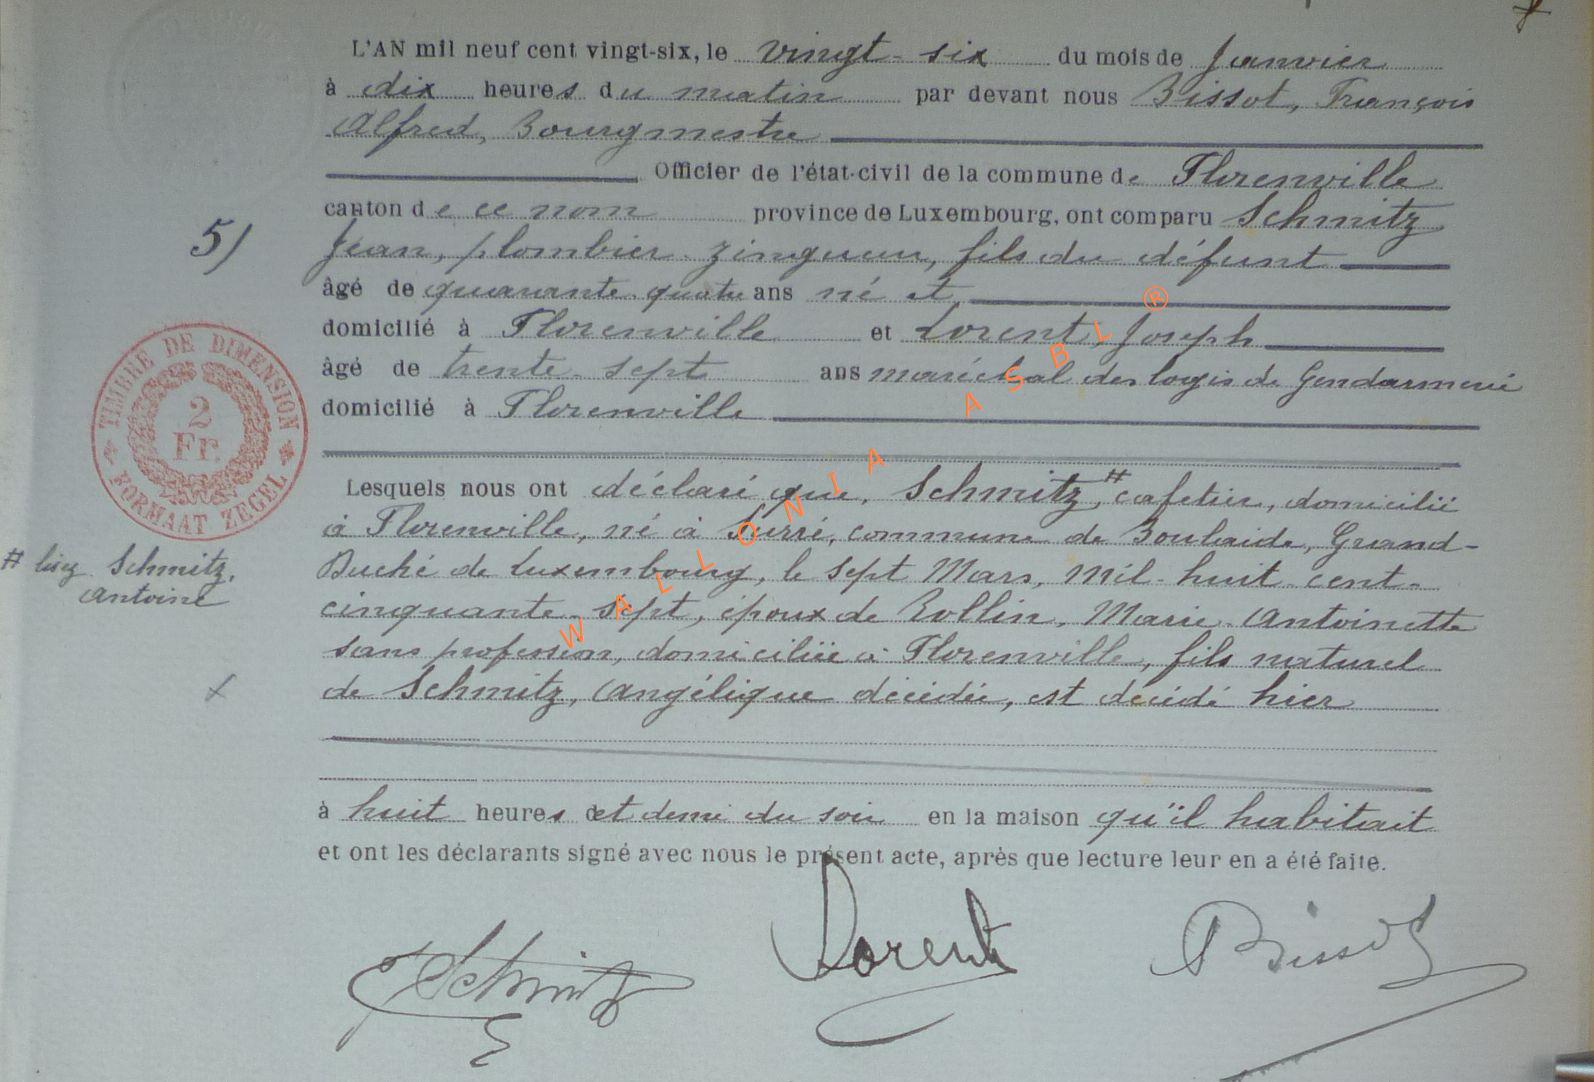 L'AN mil neuf cent vingt-six, le vingt-six du mois de Janvier
à dix heures du matin par devant nous Bissot, François
Alfred, Bourgmestre
Officier de l'état-civil de la commune de Florenville
canton de ce nom province de Luxembourg, ont comparu Schmitz
5/ Jean, plombier-zingueur, fils du défunt
âgé de quarante-quatre ans né et
domicilié à Florenville et Lorent, Joseph
âgé de trente-sept ans maréchal des logis de Gendarmerie
domicilié à Florenville
TIMBRE DE DIMENSION
2
Fr.
FORMAAT ZEGEL
Lesquels nous ont déclaré que, Schmitz, # cafetier, domicilié
à Florenville, né à Surré, commune de Boulaide, Grand-
# lisez Schmitz,
Antoine
Duché de Luxembourg, le sept Mars, mil-huit-cent-
cinquante-sept, époux de Rollin, Marie-Antoinette
sans profession, domiciliée à Florenville, fils naturel
de Schmitz, Angélique décédée, est décédé hier
à huit heures et demi du soir en la maison qu'il habitait
et ont les déclarants signé avec nous le présent acte, après que lecture leur en a été faite.
JSchmitz
Lorent
Bissot
WALLONIA ASBL ®